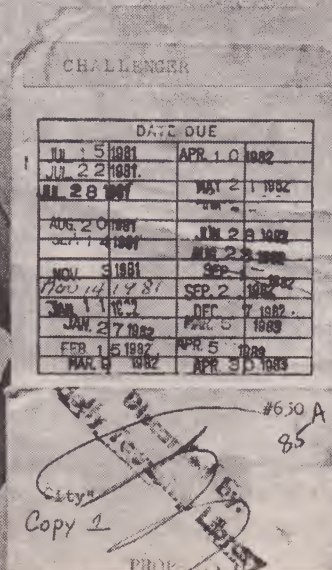 CHALLENGER
DATE DUE
JUL 15 1981 APR. 10 1982
JUL 22 1981.
JUL 28 1981 MAY 21 1982
AUG. 20 1981 JUN 28 1982
AUG 28
NOV. 3 1981 SEP
NOV 14 1981 SEP. 2 1982
JAN. 11 1982 DEC 7 1982
JAN. 27 1982 MAR. 5 1983
FEB 15 1982 APR 5
MAR. 9 1982 APR 30 1983
#630 A
85
Discarded by:
City"
Copy 1